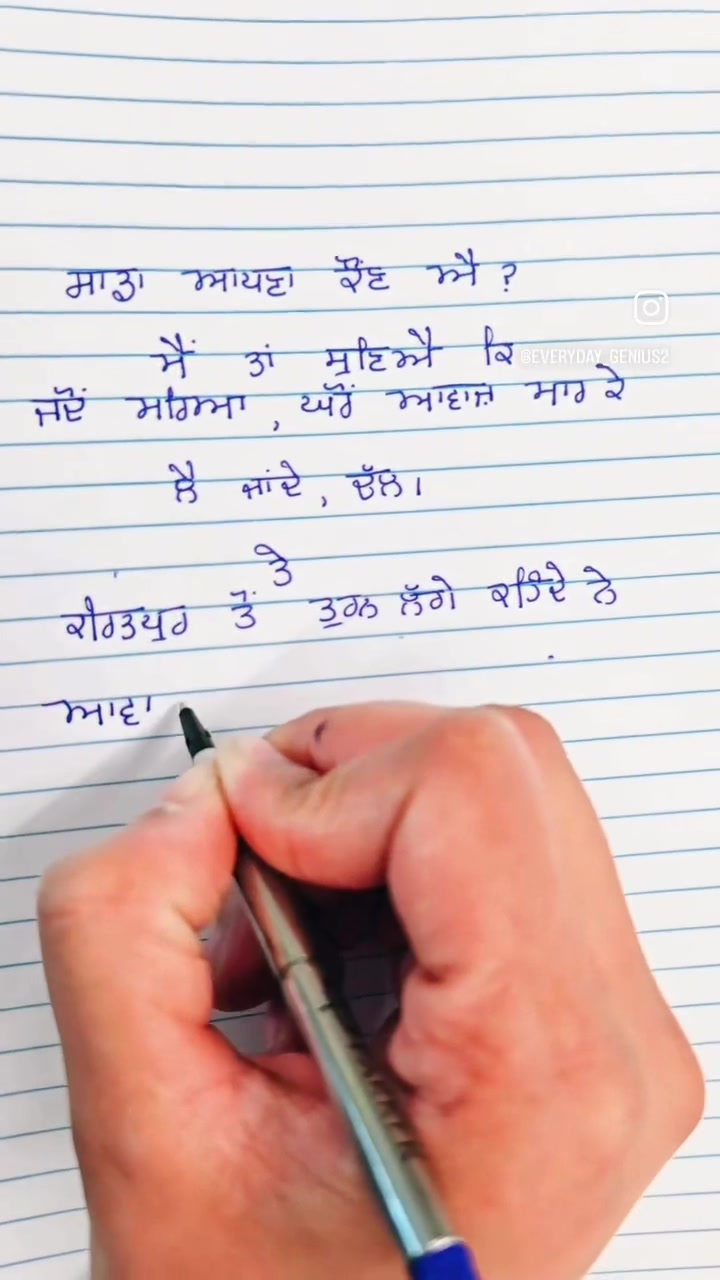 ਸਾਡਾ ਆਪਣਾ ਕੌਣ ਐ?
ਮੈਂ ਤਾਂ ਸੁਣਿਐ ਕਿ
@EVERYDAY_GENIUS2
ਜਦੋਂ ਮਰਿਆ, ਘਰੋਂ ਆਵਾਜ਼ ਮਾਰ ਕੇ
ਲੈ ਜਾਂਦੇ, ਚੱਲ।
ਤੇ
ਕੀਰਤਪੁਰ ਤੋਂ ਤੁਰਨ ਲੱਗੇ ਕਹਿੰਦੇ ਨੇ
ਆਵਾ